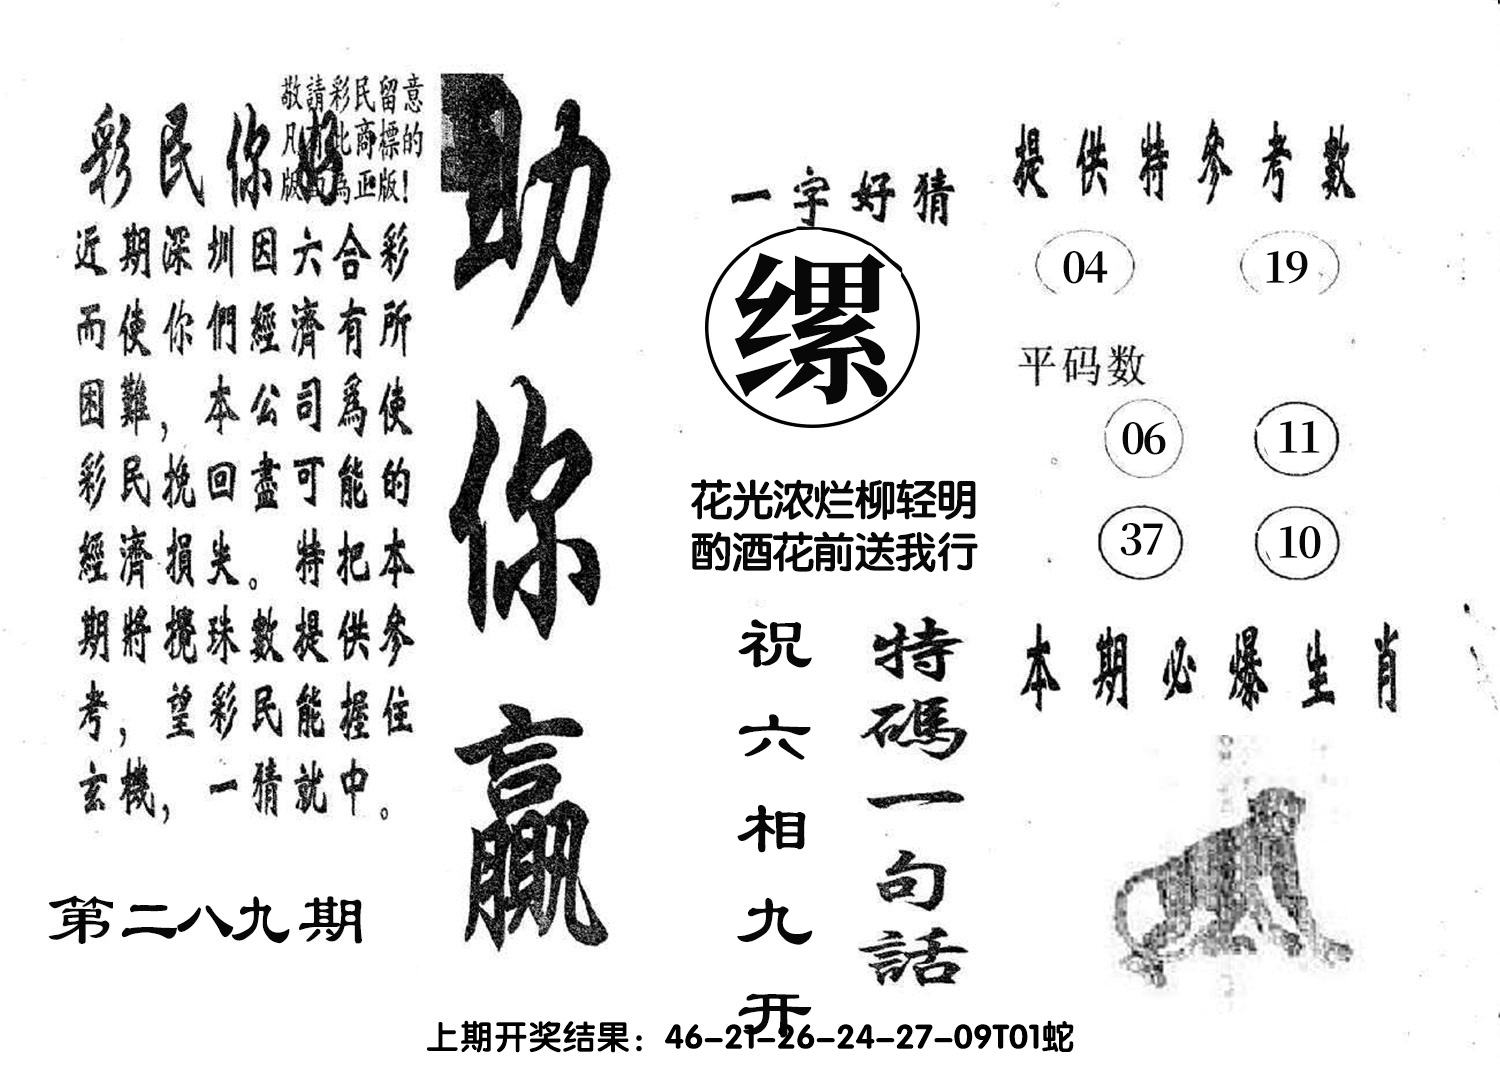 敬請彩民留意
凡有此商標的
版面為正版!
彩民你好
近期深圳因六合彩
而使你們經濟有所
困難，本公司爲使
彩民挽回盡可能的
經濟損失。特把本
期將攪珠數提供參
考，望彩民能握住
玄機，一猜就中。
第二八九期
助你贏
一字好猜
缧
花光浓烂柳轻明
酌酒花前送我行
特碼一句話
祝六相九开
提供特參考數
04 19
平码数
06 11
37 10
本期必爆生肖
上期开奖结果：46-21-26-24-27-09T01蛇